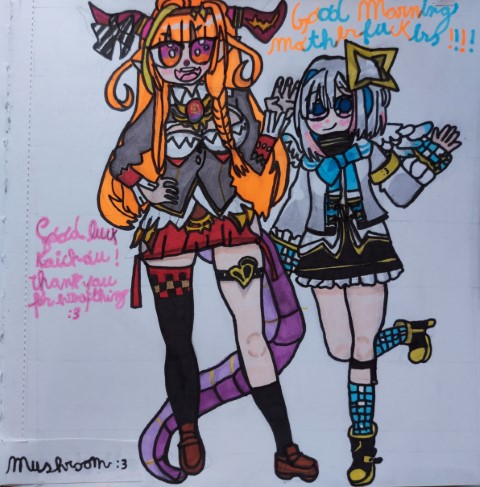 Good Morning
motherfuckers !!!!
Good luck
Kaichou !
thank you
for everything
:3
Mushroom :3